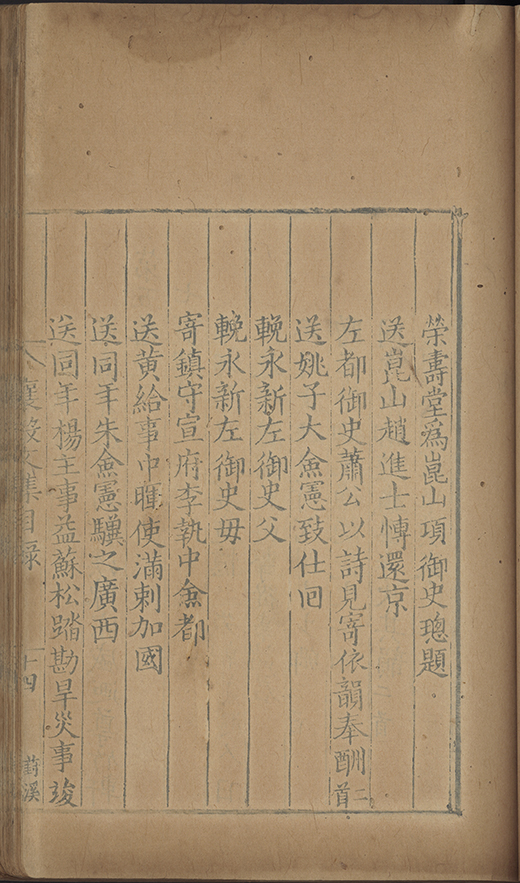 榮壽堂爲崑山項御史璁題
送崑山趙進士慱還京
左都御史蕭公以詩見寄依韻奉酬二首
送姚子大僉憲致仕囘
輓永新左御史父
輓永新左御史母
寄鎮守宣府李執中僉都
送黄給事中暉使滿剌加國
送同年朱僉憲驥之廣西
送同年楊主事益蘇松踏勘旱災事竣
襄毅文集目録 十四 葑溪